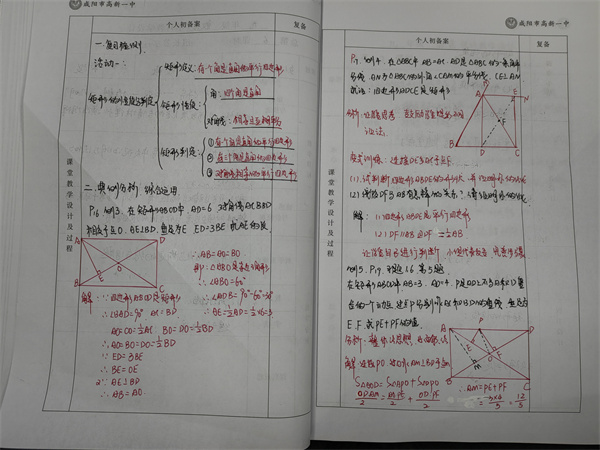 咸阳市高新一中
个人初备案
复备
课堂教学设计及过程
一.复习检测
活动一:
矩形定义: 有一个角是直角的平行四边形
矩形的性质及判定
矩形性质:
角: 四个角是直角
对角线: 相等且互相平分
矩形判定:
① 有一个角是直角的平行四边形
② 有三个角是直角的四边形
③ 对角线相等的平行四边形
二. 典例分析 综合运用
P16 例3. 在矩形ABCD中 AD=6 对角线AC与BD
相交于点O. AE⊥BD. 垂足为E ED=3BE 求AE的长
A D
E O
B C
解: ∵ 四边形ABCD是矩形
∴ ∠BAD=90° AC=BD
AO=CO=½AC BO=DO=½BD
∴ AO=BO=DO=½BD
∵ ED=3BE
∴ BE=OE
又∵ AE⊥BD
∴ AB=AO
∴ AB=AO=BO
即: △ABO是等边三角形
∴ ∠ABO=60°
∴ ∠ADB=90°-60°=30°
∴ AE=½AD=½×6=3
咸阳市高新一中
个人初备案
复备
课堂教学设计及过程
P17 例4. 在△ABC中 AB=AC AD是△ABC的一条角平
分线 AN为△ABC的外角∠CAM的平分线 CE⊥AN
求证: 四边形ADCE是矩形
A E N
F
B D C
变式训练: 连接DE交AC于点F
(1) 试判断四边形ABDE的形状 并证明你的结论
解: (1) 四边形ABDE是平行四边形
(2) DF∥AB DF=½AB
例5. P19 习题1.6 第5题
在矩形ABCD中 AB=3. AD=4. P是AD上不与A和D重
合的一个动点 过点P分别作AC和BD的垂线 垂足为
E F. 求PE+PF的值
A P D
E F
M O
B C
S△AOD=S△APO+S△DPO
∴ AM=PE+PF
=3×4/5=12/5